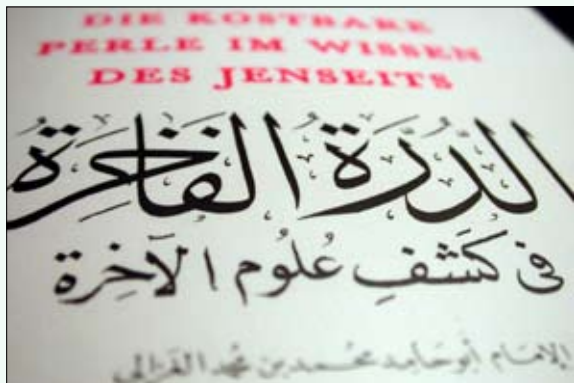 DIE KOSTBARE
PERLE IM WISSEN
DES JENSEITS
الدُّرَّة الفَاخِرَة
فى كَشفِ عُلُومِ الآخِرَة
الإمَام أبو حَامد محُـَـمد بن محمد الغزالى